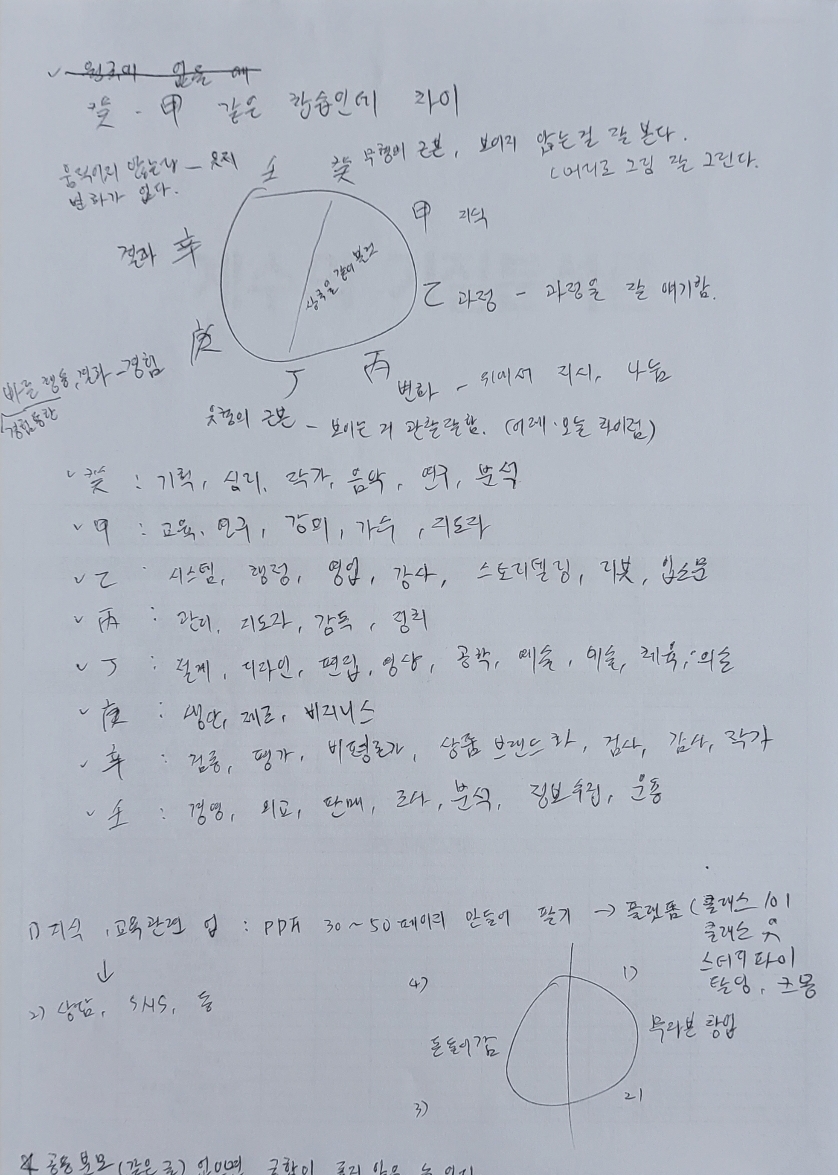 癸 - 甲 같은 학습인데 차이
움직이지 않는다 - 유지 壬 癸 무형의 근본, 보이지 않는걸 잘 본다.
변화가 없다. (머리로 그림 잘 그린다.
甲 지식
결과 辛
상극을 같이 본것
乙 과정 - 과정을 잘 얘기함.
庚
바른 행동, 결과 - 경험
경험통한
丁 丙 변화 - 위에서 지시, 나눔
유형의 근본 - 보이는 거 관찰잘함. (어제·오늘 차이점)
✓ 癸 : 기획, 심리, 작가, 음악, 연구, 분석
✓ 甲 : 교육, 연구, 강의, 가수, 지도자
✓ 乙 : 시스템, 행정, 영업, 강사, 스토리텔링, 리봇, 입소문
✓ 丙 : 관리, 지도자, 감독, 정리
✓ 丁 : 설계, 디자인, 편집, 영상, 공학, 예술, 미술, 체육, 의술
✓ 庚 : 생산, 제조, 비지니스
✓ 辛 : 검증, 평가, 비평론가, 상품 브랜드화, 검사, 감사, 작가
✓ 壬 : 경영, 외교, 판매, 조사, 분석, 정보수집, 운동
1) 지식, 교육관련 업 : PDF 30~50 페이지 만들어 팔기 → 플랫폼 (클래스 101
클래스
스터디파이
탈잉, 크몽
↓
2) 상담, SNS, 등
4) 1)
돈들어감 무자본 창업
3) 2)